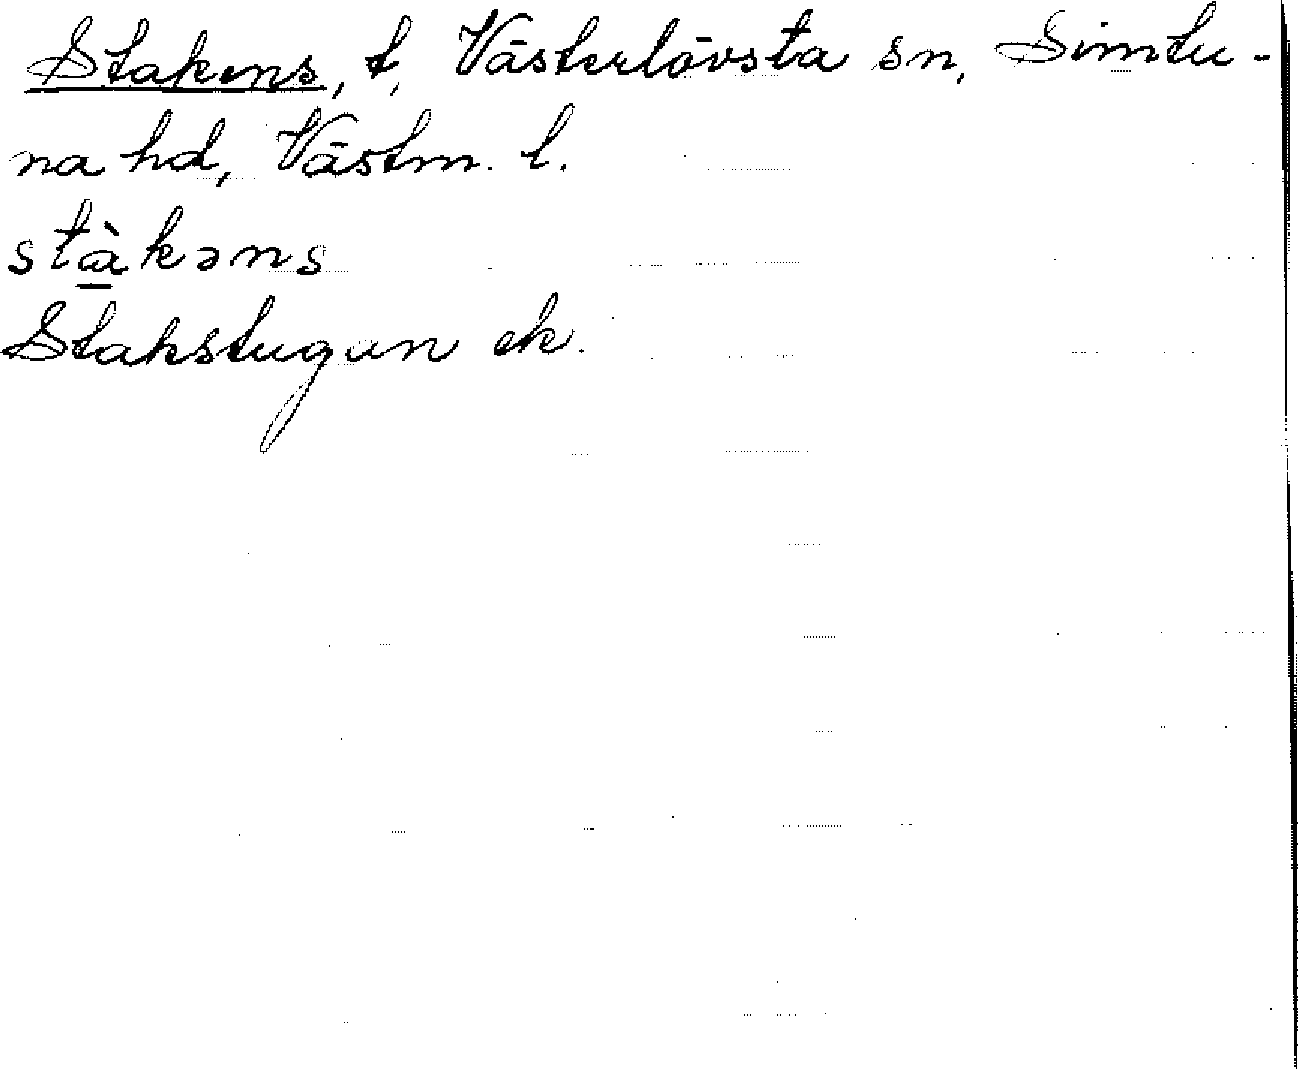 Stakens, t, Västerlövsta sn, Simtu-
na hd, Västm. l.
stàkəns
Stakstugan ek.